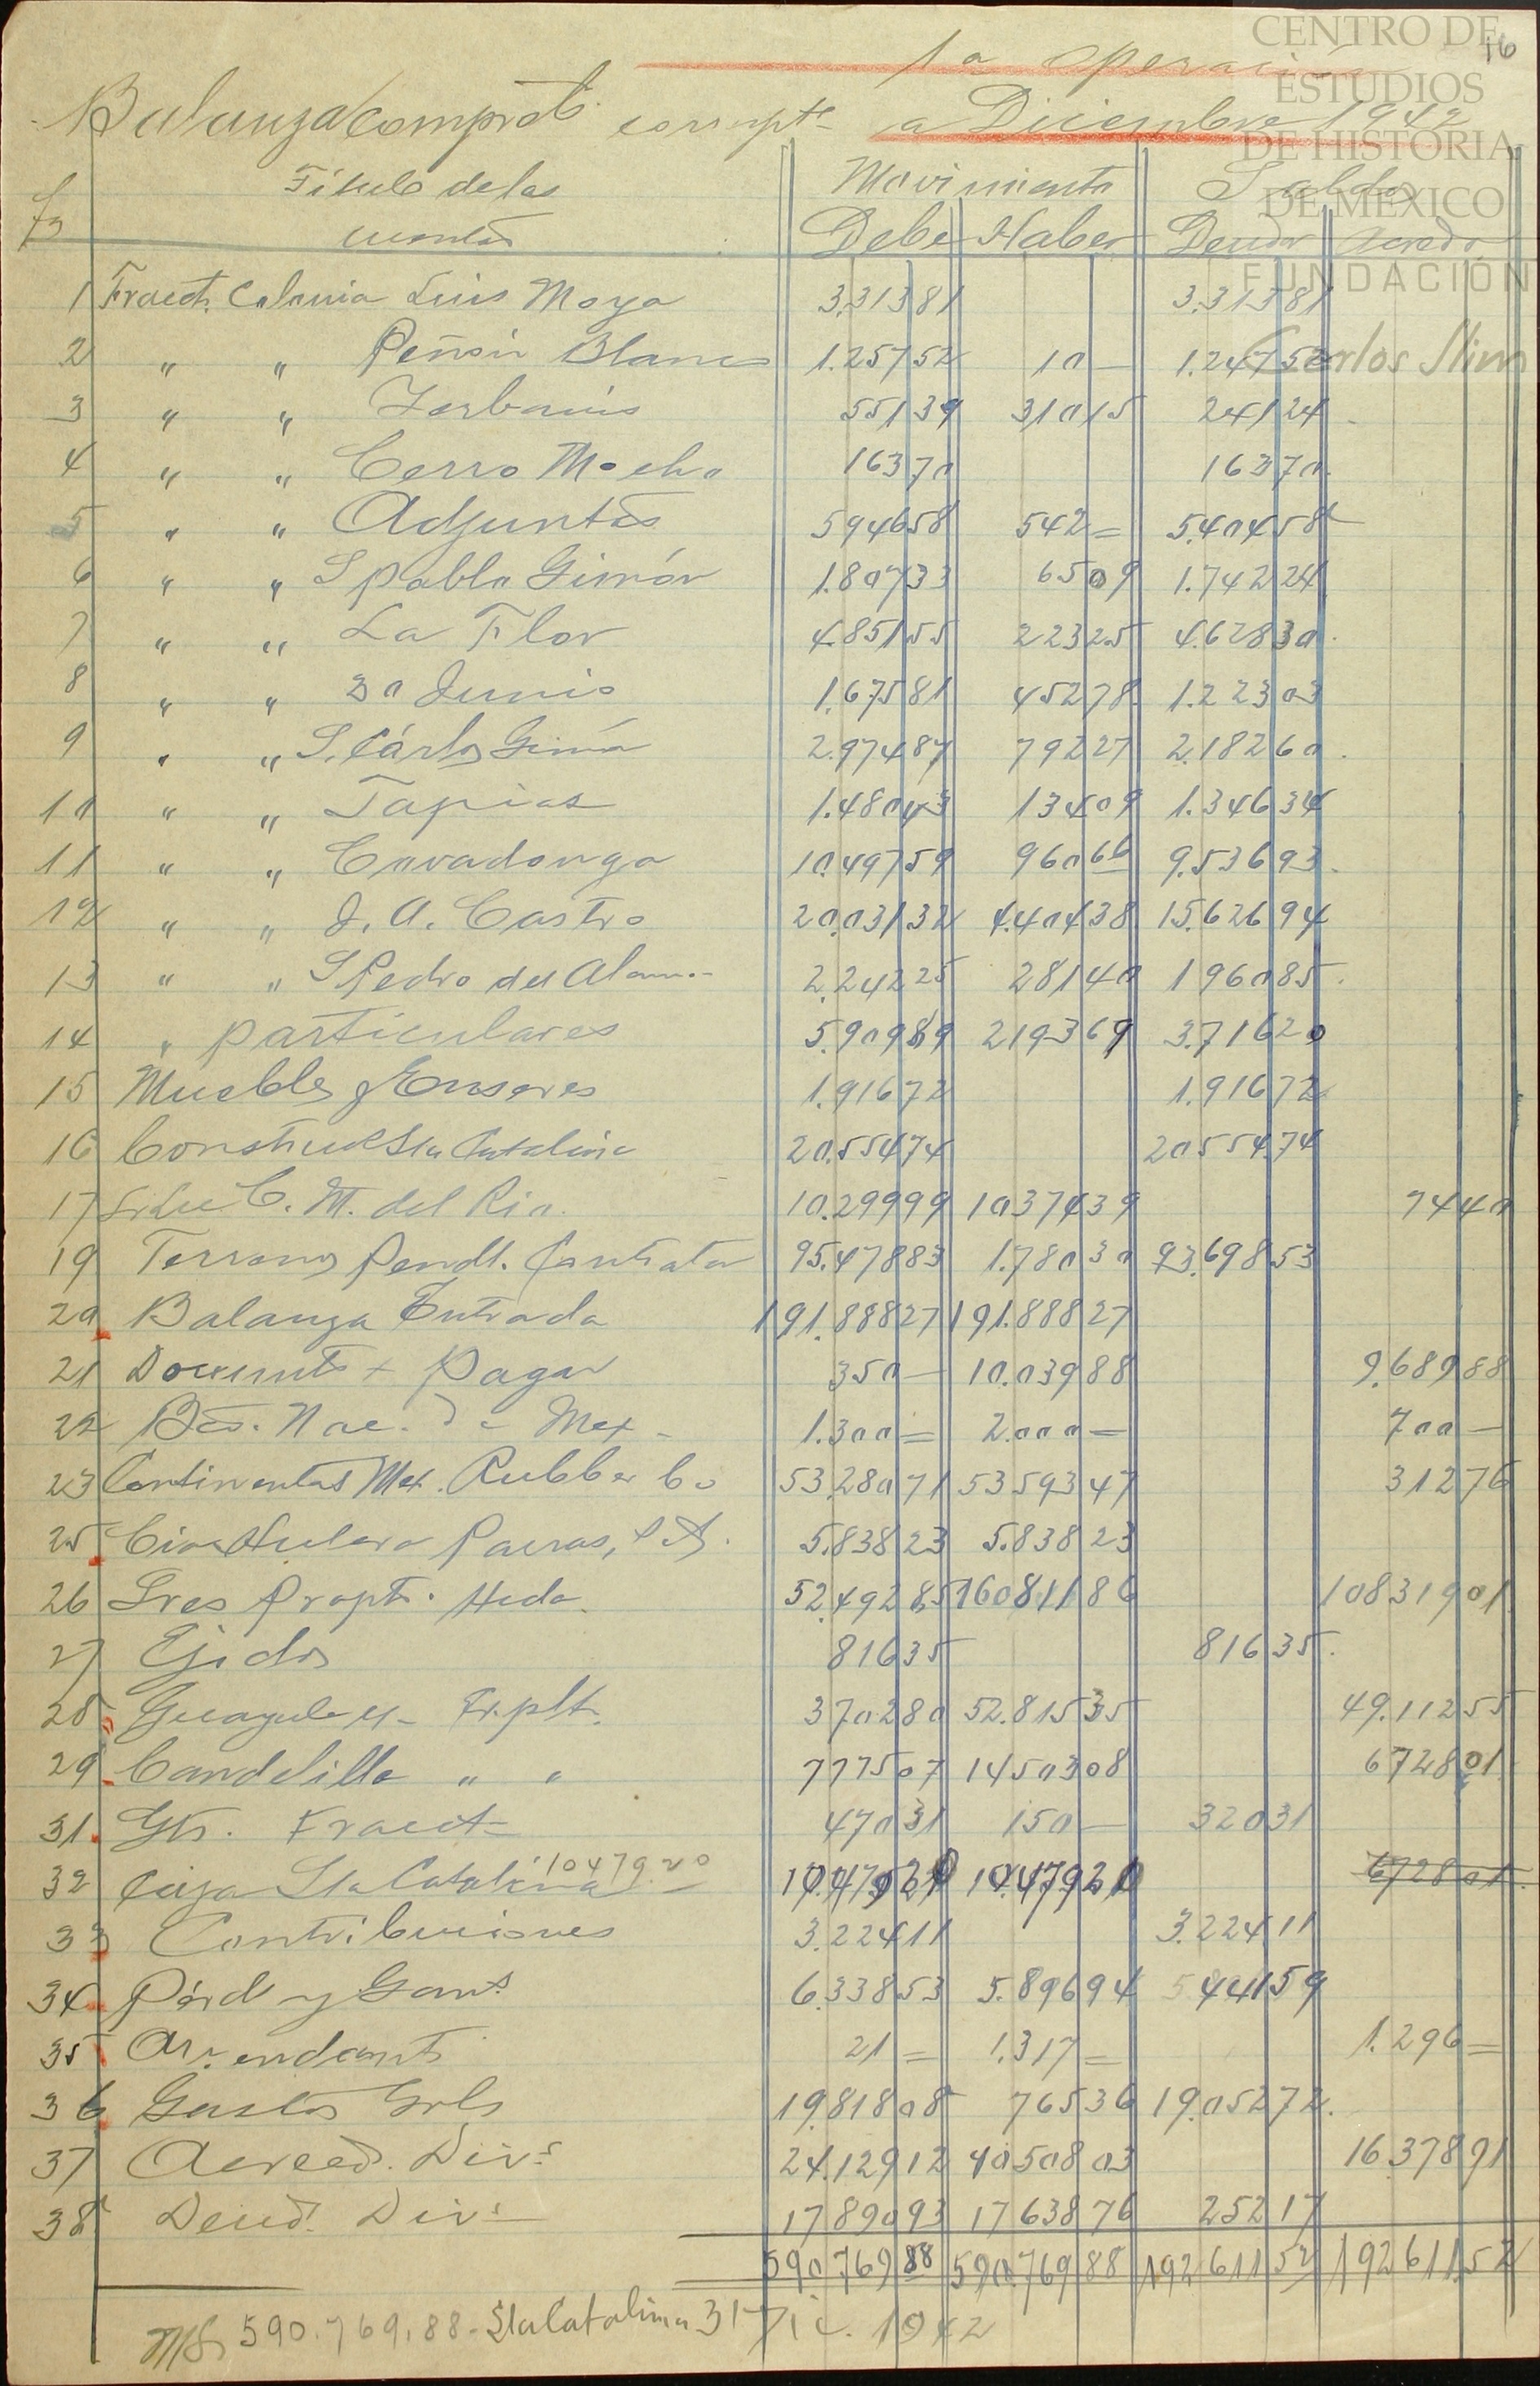 CENTRO DE
ESTUDIOS
DE HISTORIA
DE MÉXICO
FUNDACIÓN
Carlos Slim
16
1a operación
Balanza comprob. corrspte a Diciembre 1942
Fs Título de las cuentas Movimiento Saldos
Debe Haber Deudor Acredor
1 Fracct. Colonia Luis Moya 3.313 81 3.313 81
2 " " Peñón Blanco 1.257 52 10 — 1.247 52
3 " " Yerbanis 551 39 310 15 241 24
4 " " Cerro Mocho 163 70 163 70
5 " " Adjuntas 5946 58 542 = 5.404 58
6 " " S Pablo Gimón 1.807 33 65 09 1.742 24
7 " " La Flor 4.851 55 223 25 4.628 30
8 " " 30 Junio 1.675 81 452 78 1.223 03
9 " " S. Cárlos Gimón 2.974 87 792 27 2.182 60
10 " " Tapias 1.480 43 134 09 1.346 34
11 " " Covadonga 10.497 59 960 66 9.536 93
12 " " J. A. Castro 20.031 32 4.404 38 15.626 94
13 " " S Pedro del Alamo 2.242 25 281 40 1960 85
14 " particulares 5.909 89 2193 69 3.716 20
15 Muebles y Enseres 1.916 72 1.916 72
16 Construc Sta Catalina 20.554 74 20554.74
17 C. M. del Rio. 10.299 99 10374 39 74 40
19 Terrenos Pendt. Contrata 95.478 83 1.780 30 93.698 53
20 Balanza Entrada 191.888 27 191.888 27
21 Documts x Pagar 350 — 10.039 88 9.689 88
22 Bco. Nac. de Mex 1.300 = 2.000 — 700 —
23 Continental Mex. Rubber Co 53.280 71 53593 47 312 76
25 Cia Hulera Parras, S A. 5.838 23 5.838 23
26 Sres Propts. Hda. 52.492 85 160811 86 108319 01
27 Ejidos 816 35 816 35
28 Guayule x Explt. 3702 80 52.815 35 49.112 55
29 Candelilla " " 7775 07 14503 08 6728 01
31 Gts. Fracct 470 31 150 — 320 31
32 Caja Sta Catalina 10479.20 10.479 20 10.479 20 6728 01
33 Contribuciones 3.224 11 3.224 11
34 Pérd y Gans 6.338 53 5.896 94 441 59
35 Arrendamts 21 = 1.317 = 1.296 =
36 Gastos Grls 19.818 08 765 36 19.052 72
37 Acreed. Divs 24.129 12 40508 03 16378 91
38 Deud. Divs 17890 93 17638 76 252 17
590.769 88 590.769 88 192.611 52 192 611.52
MS 590.769.88 - Sta Catalina 31 Dic. 1942